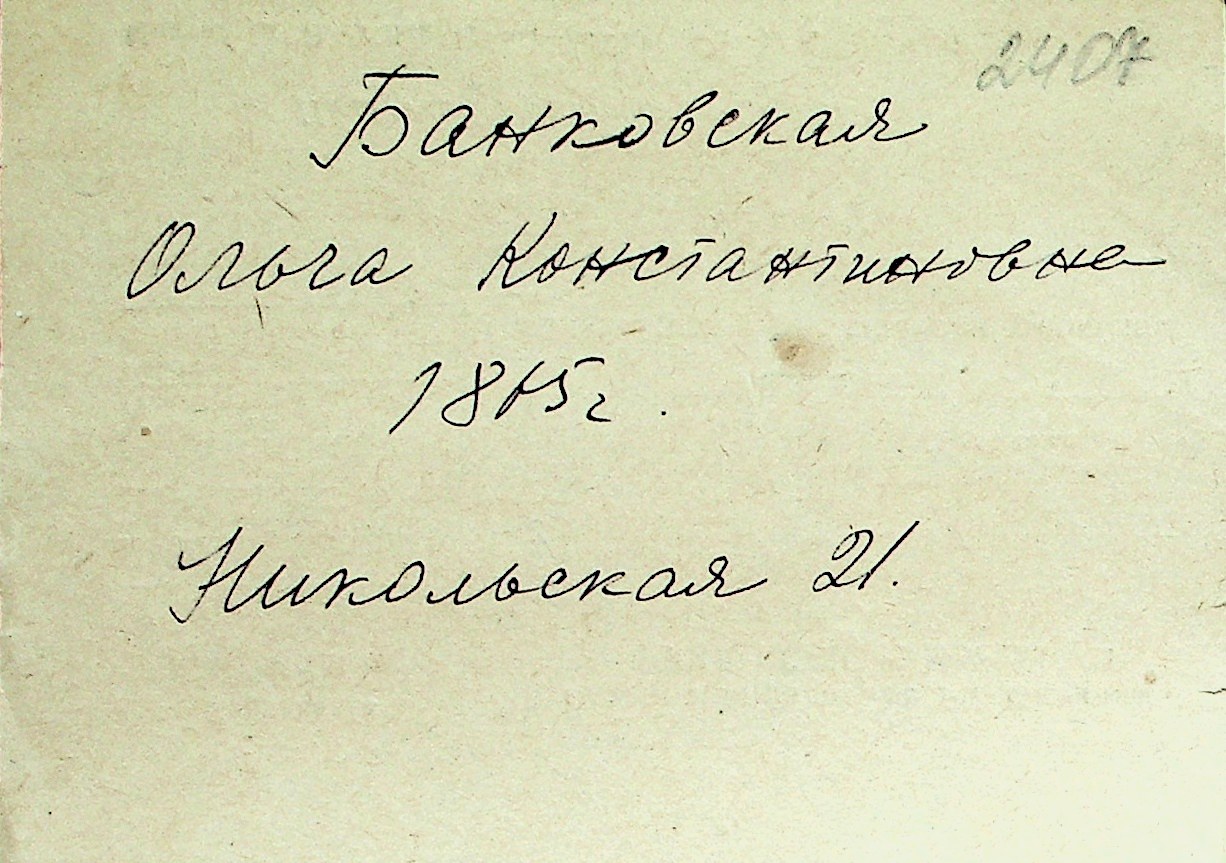 2407
Банковская
Ольга Константиновна
1875г.
Никольская 21.